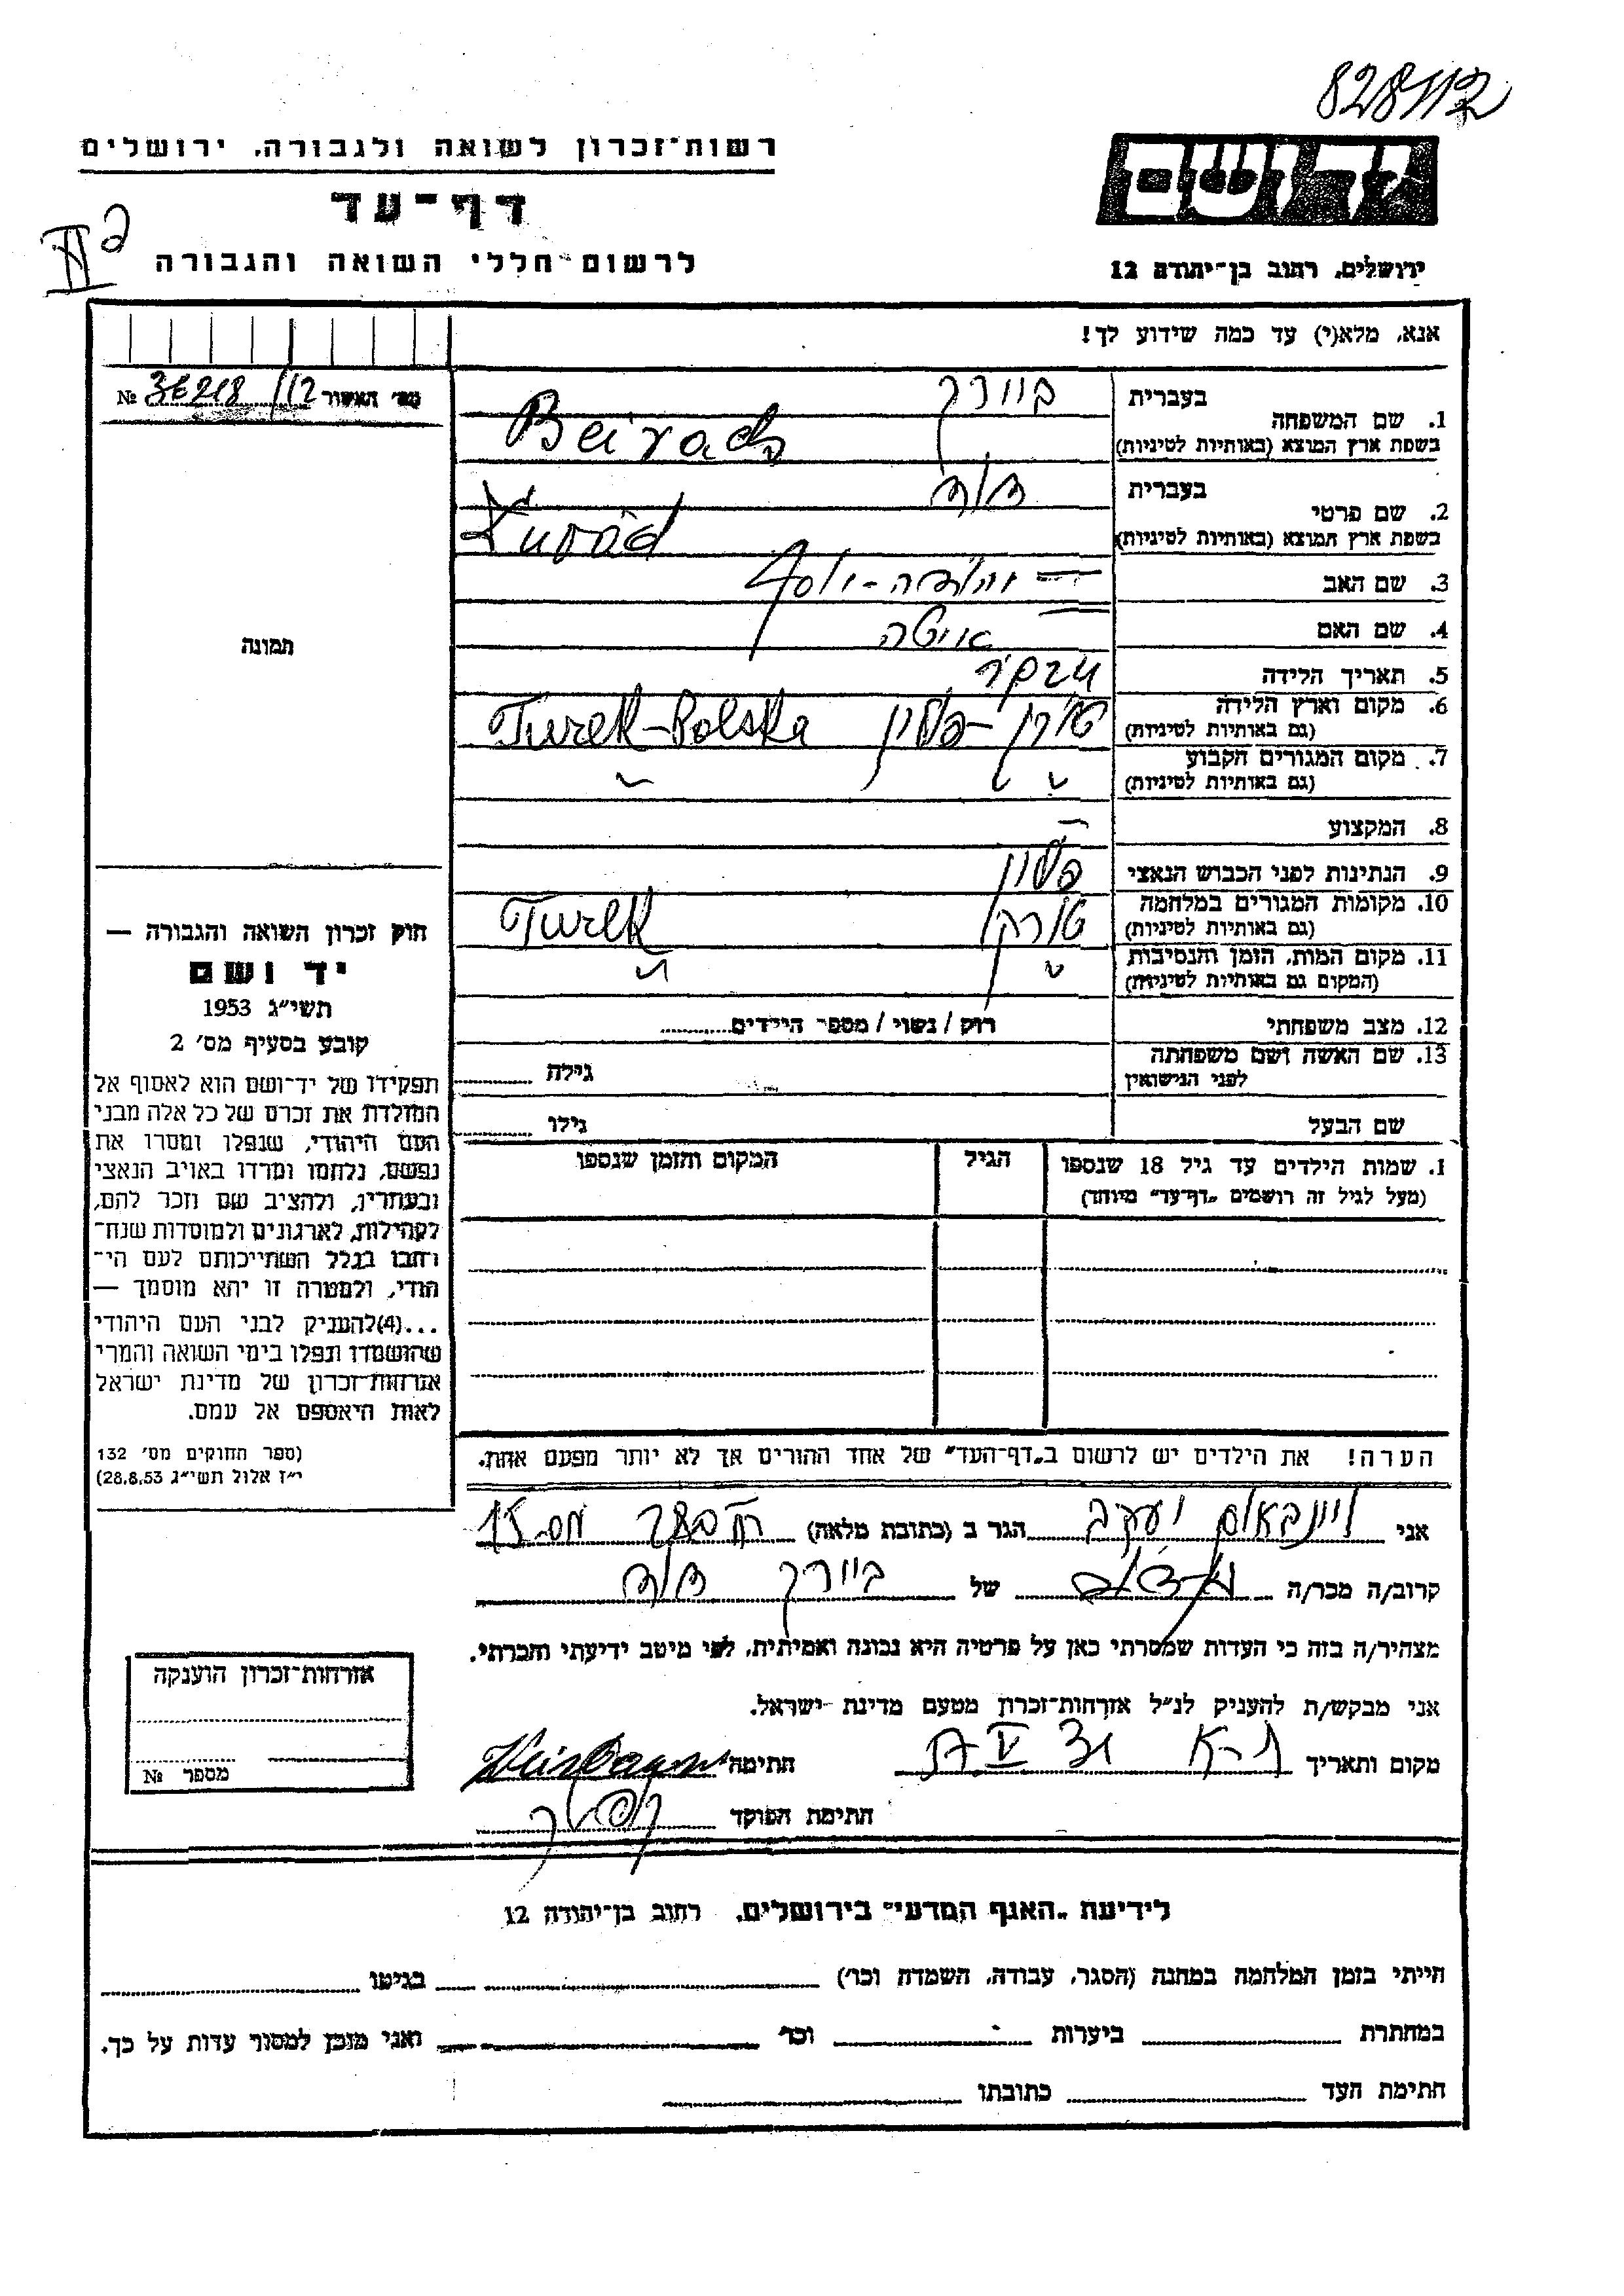 828112
רשות־זכרון לשואה ולגבורה, ירושלים
דף־עד
לרשום חללי השואה והגבורה
ירושלים, רחוב בן־יהודה 12
אנא, מלא(י) עד כמה שידוע לך!
מס׳ האשור № /112
תמונה
חוק זכרון השואה והגבורה —
יד ושם
תשי״ג 1953
קובע בסעיף מס׳ 2
תפקידו של יד־ושם הוא לאסוף אל
המולדת את זכרם של כל אלה מבני
העם היהודי, שנפלו ומסרו את
נפשם, נלחמו ומרדו באויב הנאצי
ובעוזריו, ולהציב שם וזכר להם,
לקהילות, לארגונים ולמוסדות שנח־
רחבו בגלל השתייכותם לעם הי־
הודי, ולמטרה זו יהא מוסמך —
...(4)להעניק לבני העם היהודי
שהושמדו ונפלו בימי השואה והמרי
אזרחות־זכרון של מדינת ישראל
לאות היאספם אל עמם.
(ספר תחוקים מס׳ 132
י״ז אלול תשי״ג 28.8.53)
1. שם המשפחה
בעברית ביירך
בשפת ארץ המוצא (באותיות לטיניות) Beirach
2. שם פרטי
בעברית
בשפת ארץ המוצא (באותיות לטיניות)
3. שם האב
4. שם האם
5. תאריך הלידה
6. מקום וארץ הלידה
(גם באותיות לטיניות) טורק - פולין Turek-Polska
7. מקום המגורים הקבוע
(גם באותיות לטיניות) " "
8. המקצוע —
9. הנתינות לפני הכבוש הנאצי פולין
10. מקומות המגורים במלחמה
(גם באותיות לטיניות) טורק Turek
11. מקום המות, הזמן והנסיבות
(המקום גם באותיות לטיניות) " "
12. מצב משפחתי רוק / נשוי / מספר הילדים
13. שם האשה ושם משפחתה
לפני הנישואין גילה
שם הבעל גילו
1. שמות הילדים עד גיל 18 שנספו הגיל המקום והזמן שנספו
(מעל לגיל זה רושמים „דף־עד״ מיוחד)
הערה! את הילדים יש לרשום ב„דף־העד״ של אחד ההורים אך לא יותר מפעם אחת.
אני ויינבאום יעקב הגר ב (כתובת מלאה)
קרוב/ה מכר/ה של ביירך
מצהיר/ה בזה כי העדות שמסרתי כאן על פרטיה היא נכונה ואמיתית, לפי מיטב ידיעתי והכרתי.
אני מבקש/ת להעניק לנ״ל אזרחות־זכרון מטעם מדינת ישראל.
מקום ותאריך ת-א חתימה
חתימת הפוקד
אזרחות־זכרון הוענקה
מספר №
לידיעת „האגף המדעי״ בירושלים, רחוב בן־יהודה 12
הייתי בזמן המלחמה במחנה (הסגר, עבודה, השמדה וכו׳) בגיטו
במחתרת ביערות וכו׳ ואני מוכן למסור עדות על כך.
חתימת העד כתובתו